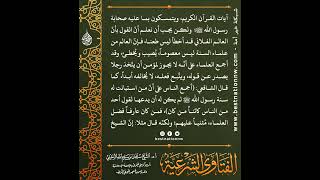 آيات القرآن الكريم، ويتمسكون بما عليه صحابة
رسول الله ﷺ ولكن يجب أن نعلم أنَّ القول بأن
العالم الفلاني قد أخطأ ليس طعنًا، فإنَّ العالم من
علماء السنة ليس معصومًا، يُصيب ويُخطئ، وقد
أجمع العلماء على أنَّه لا يجوز لمؤمن أن يتخذ رجلًا
يصدر عن قوله، ويتَّبع فعله، لا يخالفه أبدًا، كما
قال الشافعي: (أجمع الناس على أنَّ من استبانت له
سنة رسول الله ﷺ لم يكن له أن يدعها لقول أحد
من الناس كائنًا من كان)، فمن كان عارفًا فضل
العلماء، مُثنيًا عليهم، ولكنَّه قال مثلًا: إنَّ الشيخ
bestnationnw
الفتاوى الشرعية
www.bestnationnw.com